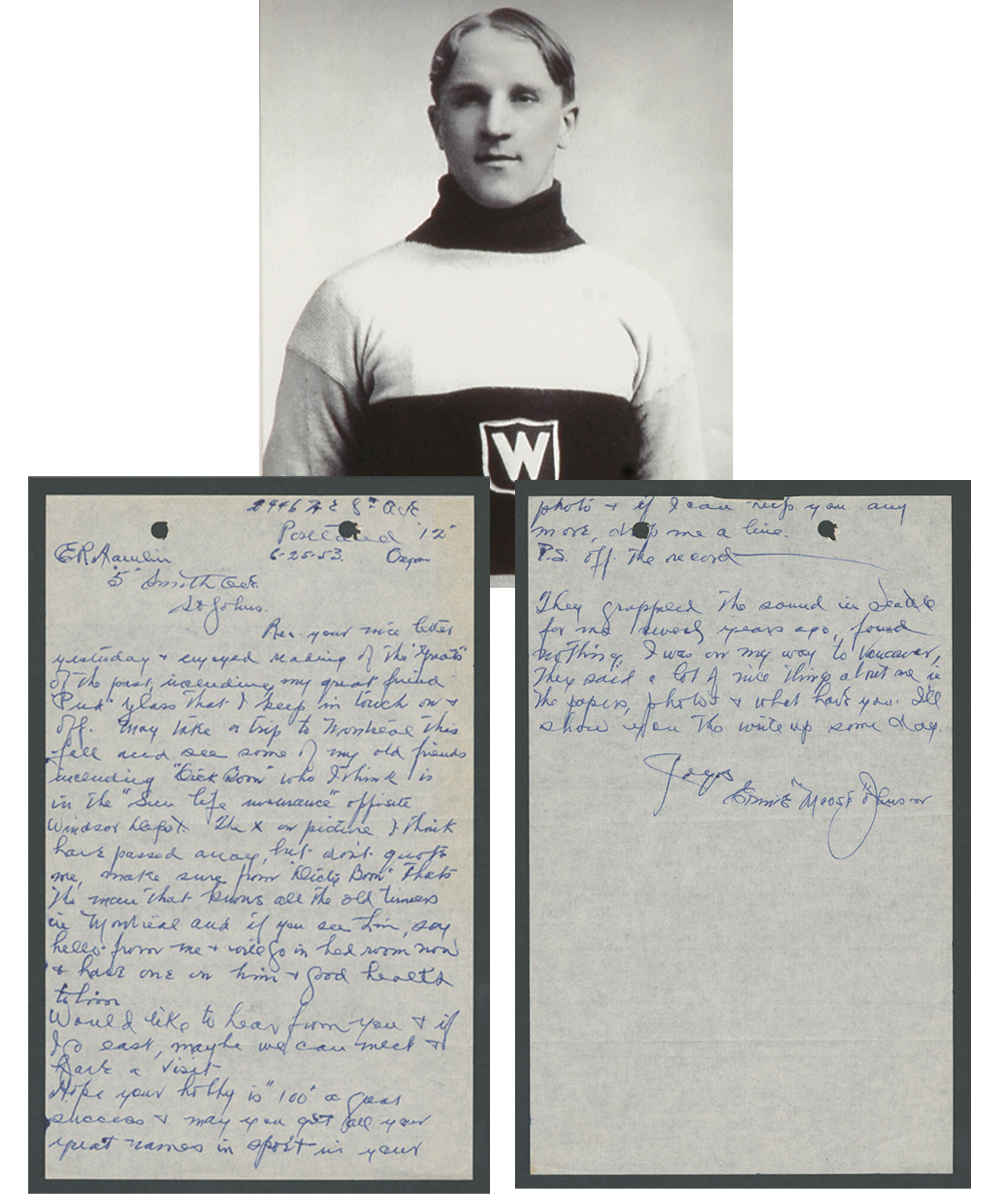 W
N E 8th Ave
Portland "12"
6-25-53. Oregon
E.R. Hamlin
5 Smith
St Johns.
Rec. your nice letter
yesterday & enjoyed reading of the "greats"
of the past, including my great friend
"Pud" Glass that I keep in touch on &
off. May take a trip to Montreal this
fall and see some of my old friends
including "Dick Boon" who I think is
in the "Sun life insurance" opposite
Windsor Depot. The X on picture I think
have passed away, but don't quote
me, make sure from "Dick Boon" thats
the man that knows all the old timers
in Montreal and if you see him, say
hello from me & go in bed room now
& have one on him & good health
to him
Would like to hear from you & if
I go east, maybe we can meet &
have a visit
Hope your hobby is "100" a great
success & may you get all your
great names in sport in your
photo & if I can help you any
more, drop me a line.
P.S. off the record
They grappled the sound in Seattle
for me several years ago, found
nothing, I was on my way to Vancouver,
They said a lot of nice things about me in
the papers, photos & what have you. I'll
show you the write up some day.
Ernie "Moose" Johnson